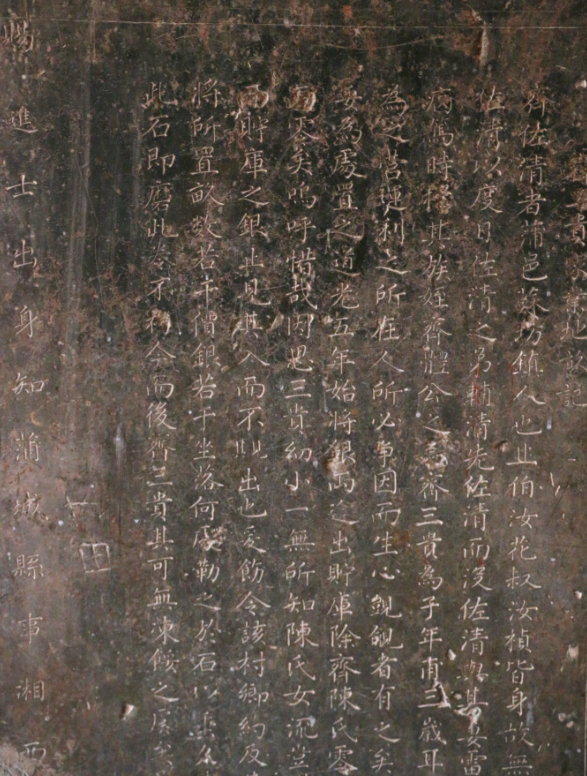 齊佐清者蒲邑蘇坊鎮人也止伯汝花叔汝楨皆身故無
佐清以度日佐清之弟輔清先佐清而没佐清與其妻雷
病篤時擇其族姪齊體公之子齊三貴為子年甫三歲耳
為之營運利之所在人所必爭因而生心覬覦者有之矣
妥為處置之道光五年始將銀兩追出貯庫除齊陳氏零
零矣嗚呼惜哉因思三貴幼小一無所知陳氏女流豈
而貯庫之銀止見其入而不見其出也爰飭令該村鄉約及
將所置畝數若干價銀若干坐落何處勒之於石以垂久
此石即磨此券不朽余而後齊三貴其可無凍餒之虞矣
賜進士出身知蒲城縣事湘西